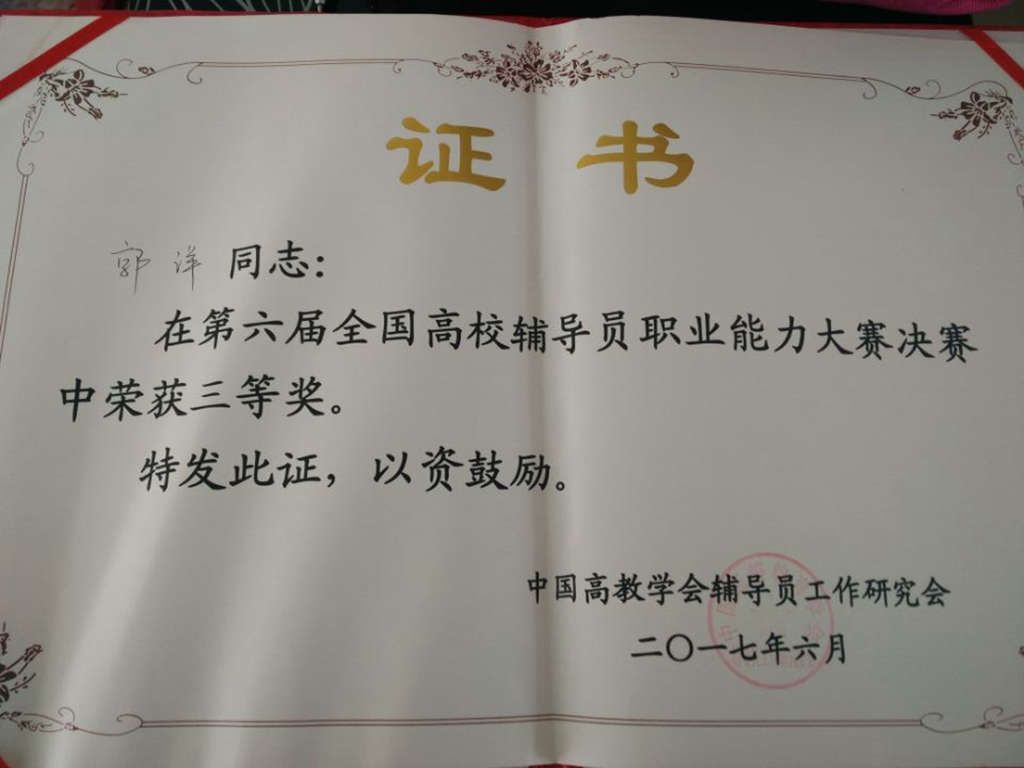 证书
郭洋同志：
在第六届全国高校辅导员职业能力大赛决赛
中荣获三等奖。
特发此证，以资鼓励。
中国高教学会辅导员工作研究会
二〇一七年六月